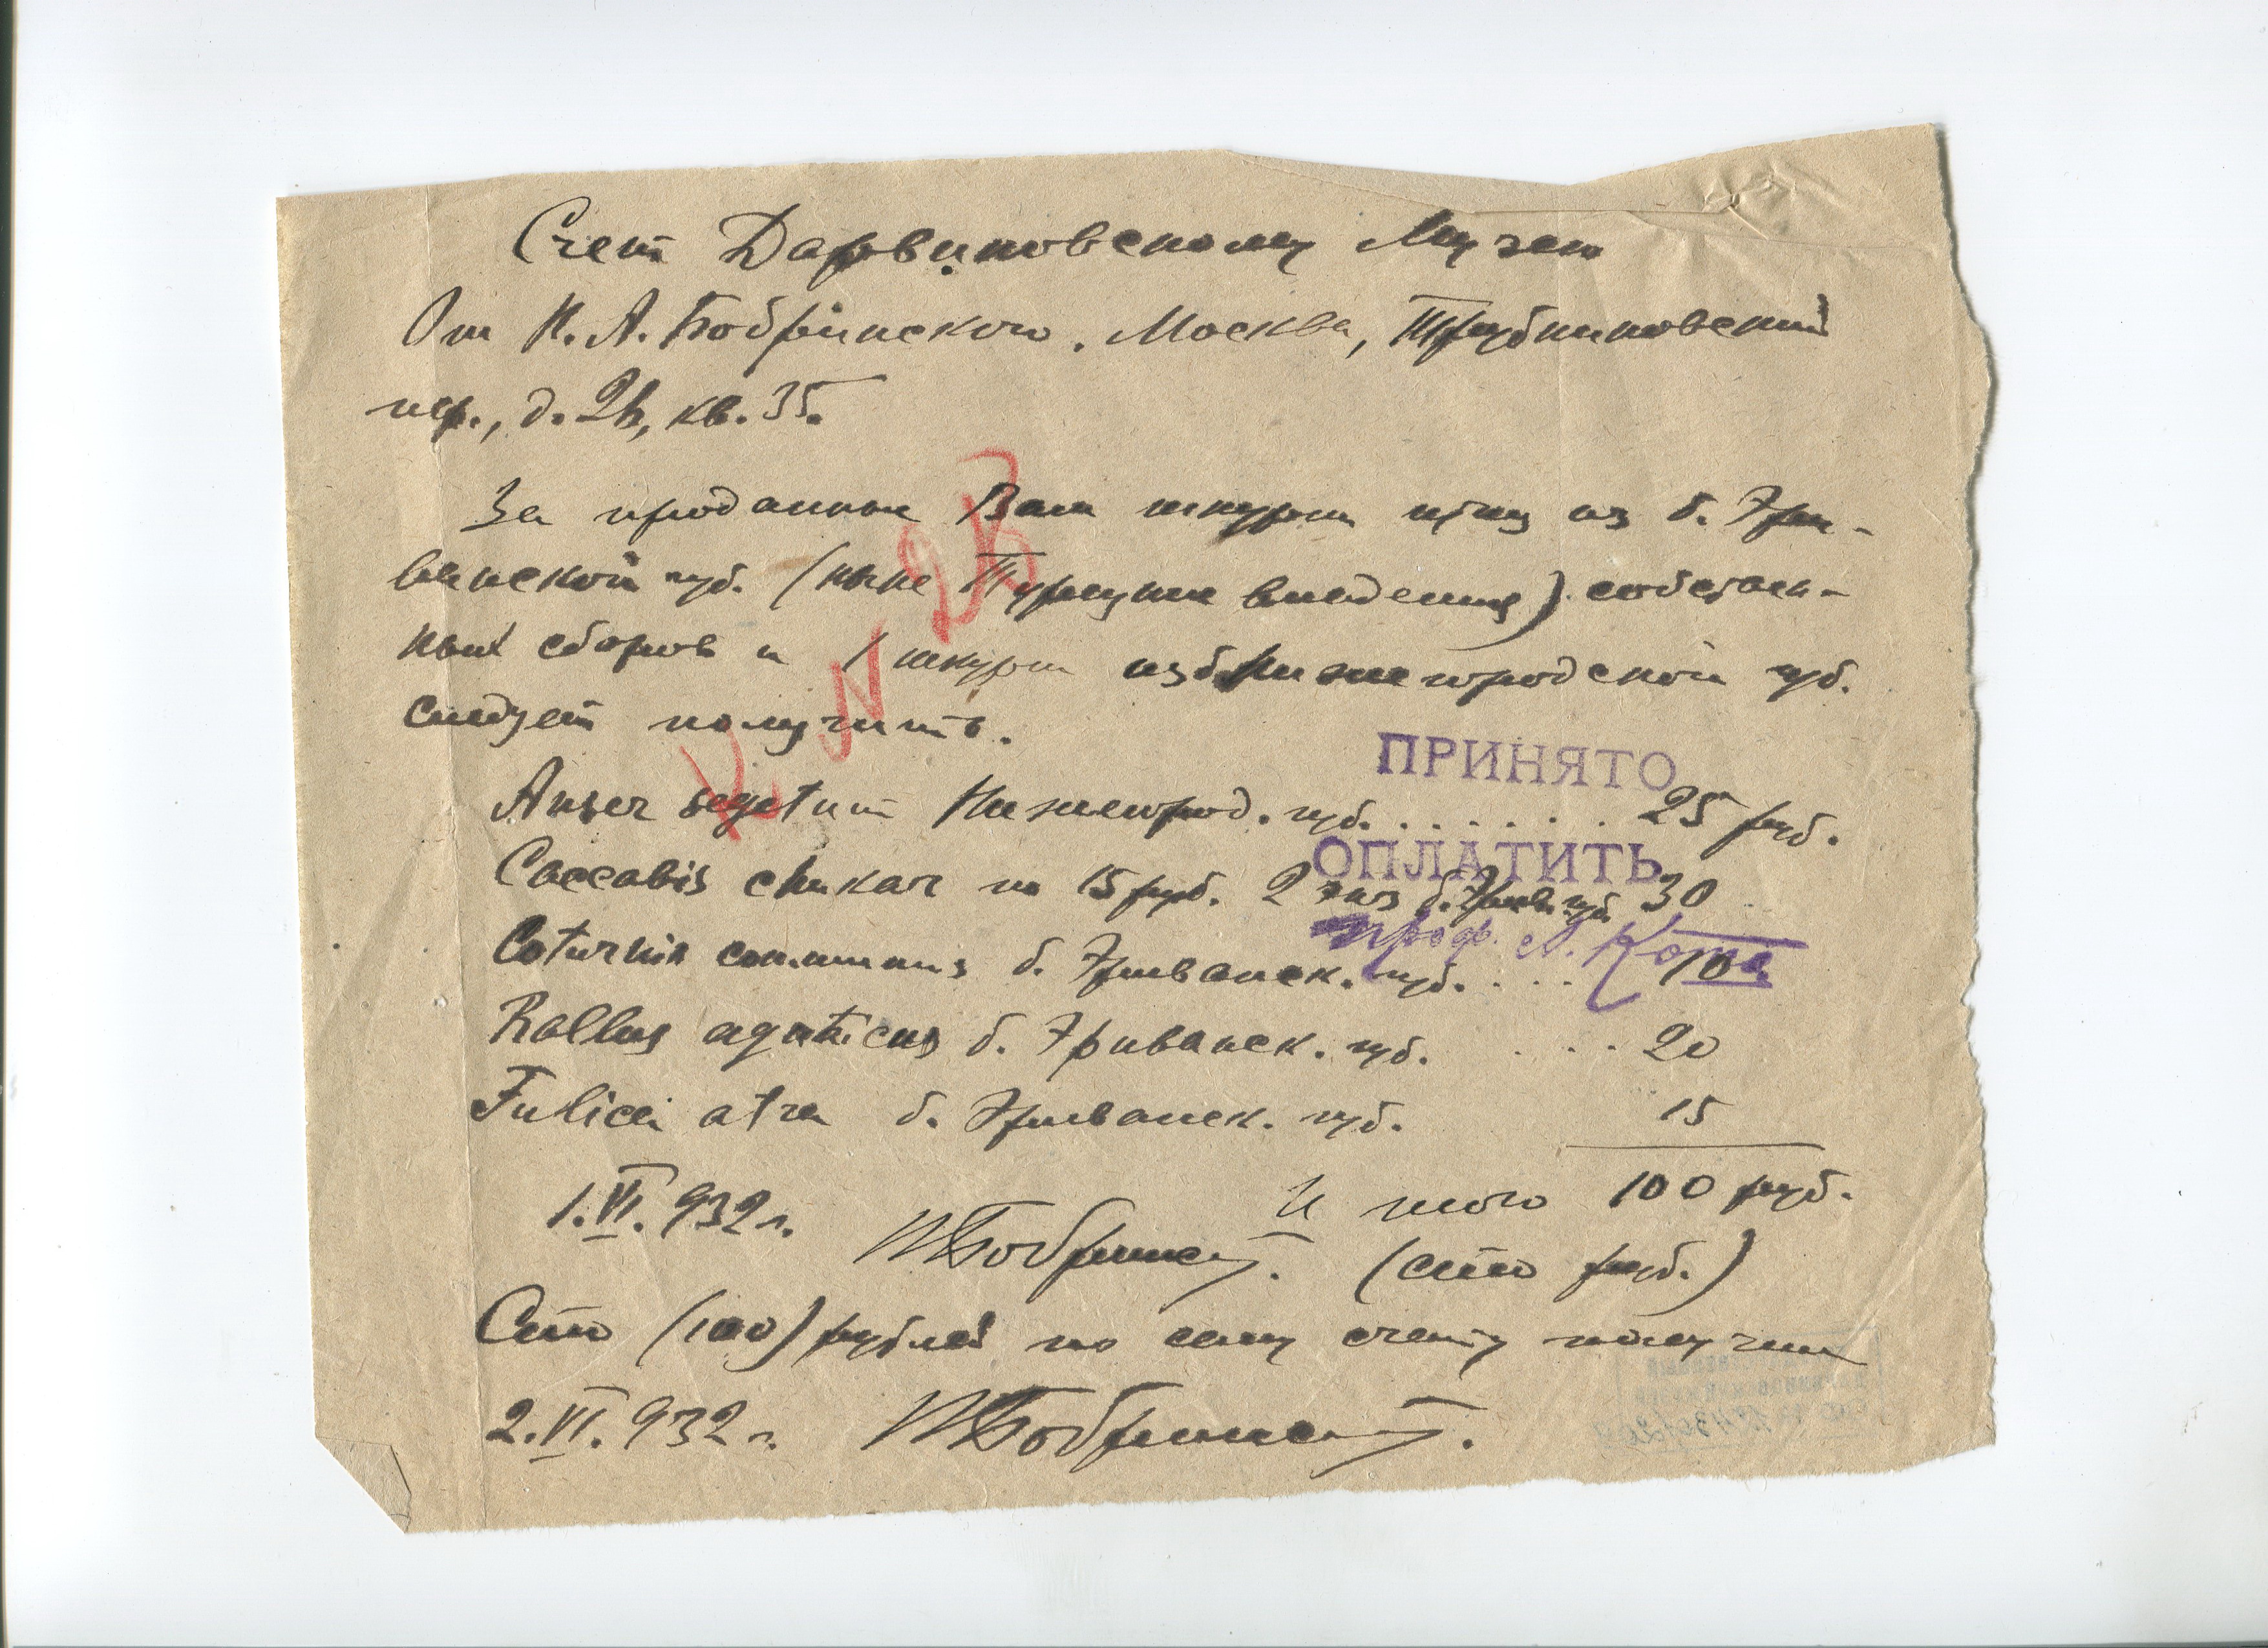 Счет Дарвиновскому Музею
От Н. А. Бобринского. Москва, Трубниковский
пер., д. 26, кв. 35.
За проданные Вам шкурки птиц из б. Эри-
ванской губ. (ныне Турецкие владения) собствен-
ных сборов и 1 шкурки из б. Нижегородской губ.
следует получить.
К N 26
ПРИНЯТО
Anser segetum Нижегород. губ. . . . . . . 25 руб.
ОПЛАТИТЬ
Caccabis chukar по 15 руб. 2 экз б. Эрив. губ. 30
проф. А. Котс
Coturnix communis б. Эриванск. губ. . . . . 10
Rallus aquaticus б. Эриванск. губ. . . . 20
Fulica atra б. Эриванск. губ. 15
1.VI.932 г. И того 100 руб.
НБобринский. (сто руб.)
Сто (100) рублей по сему счету получил
2.VI.932 г. НБобринский.